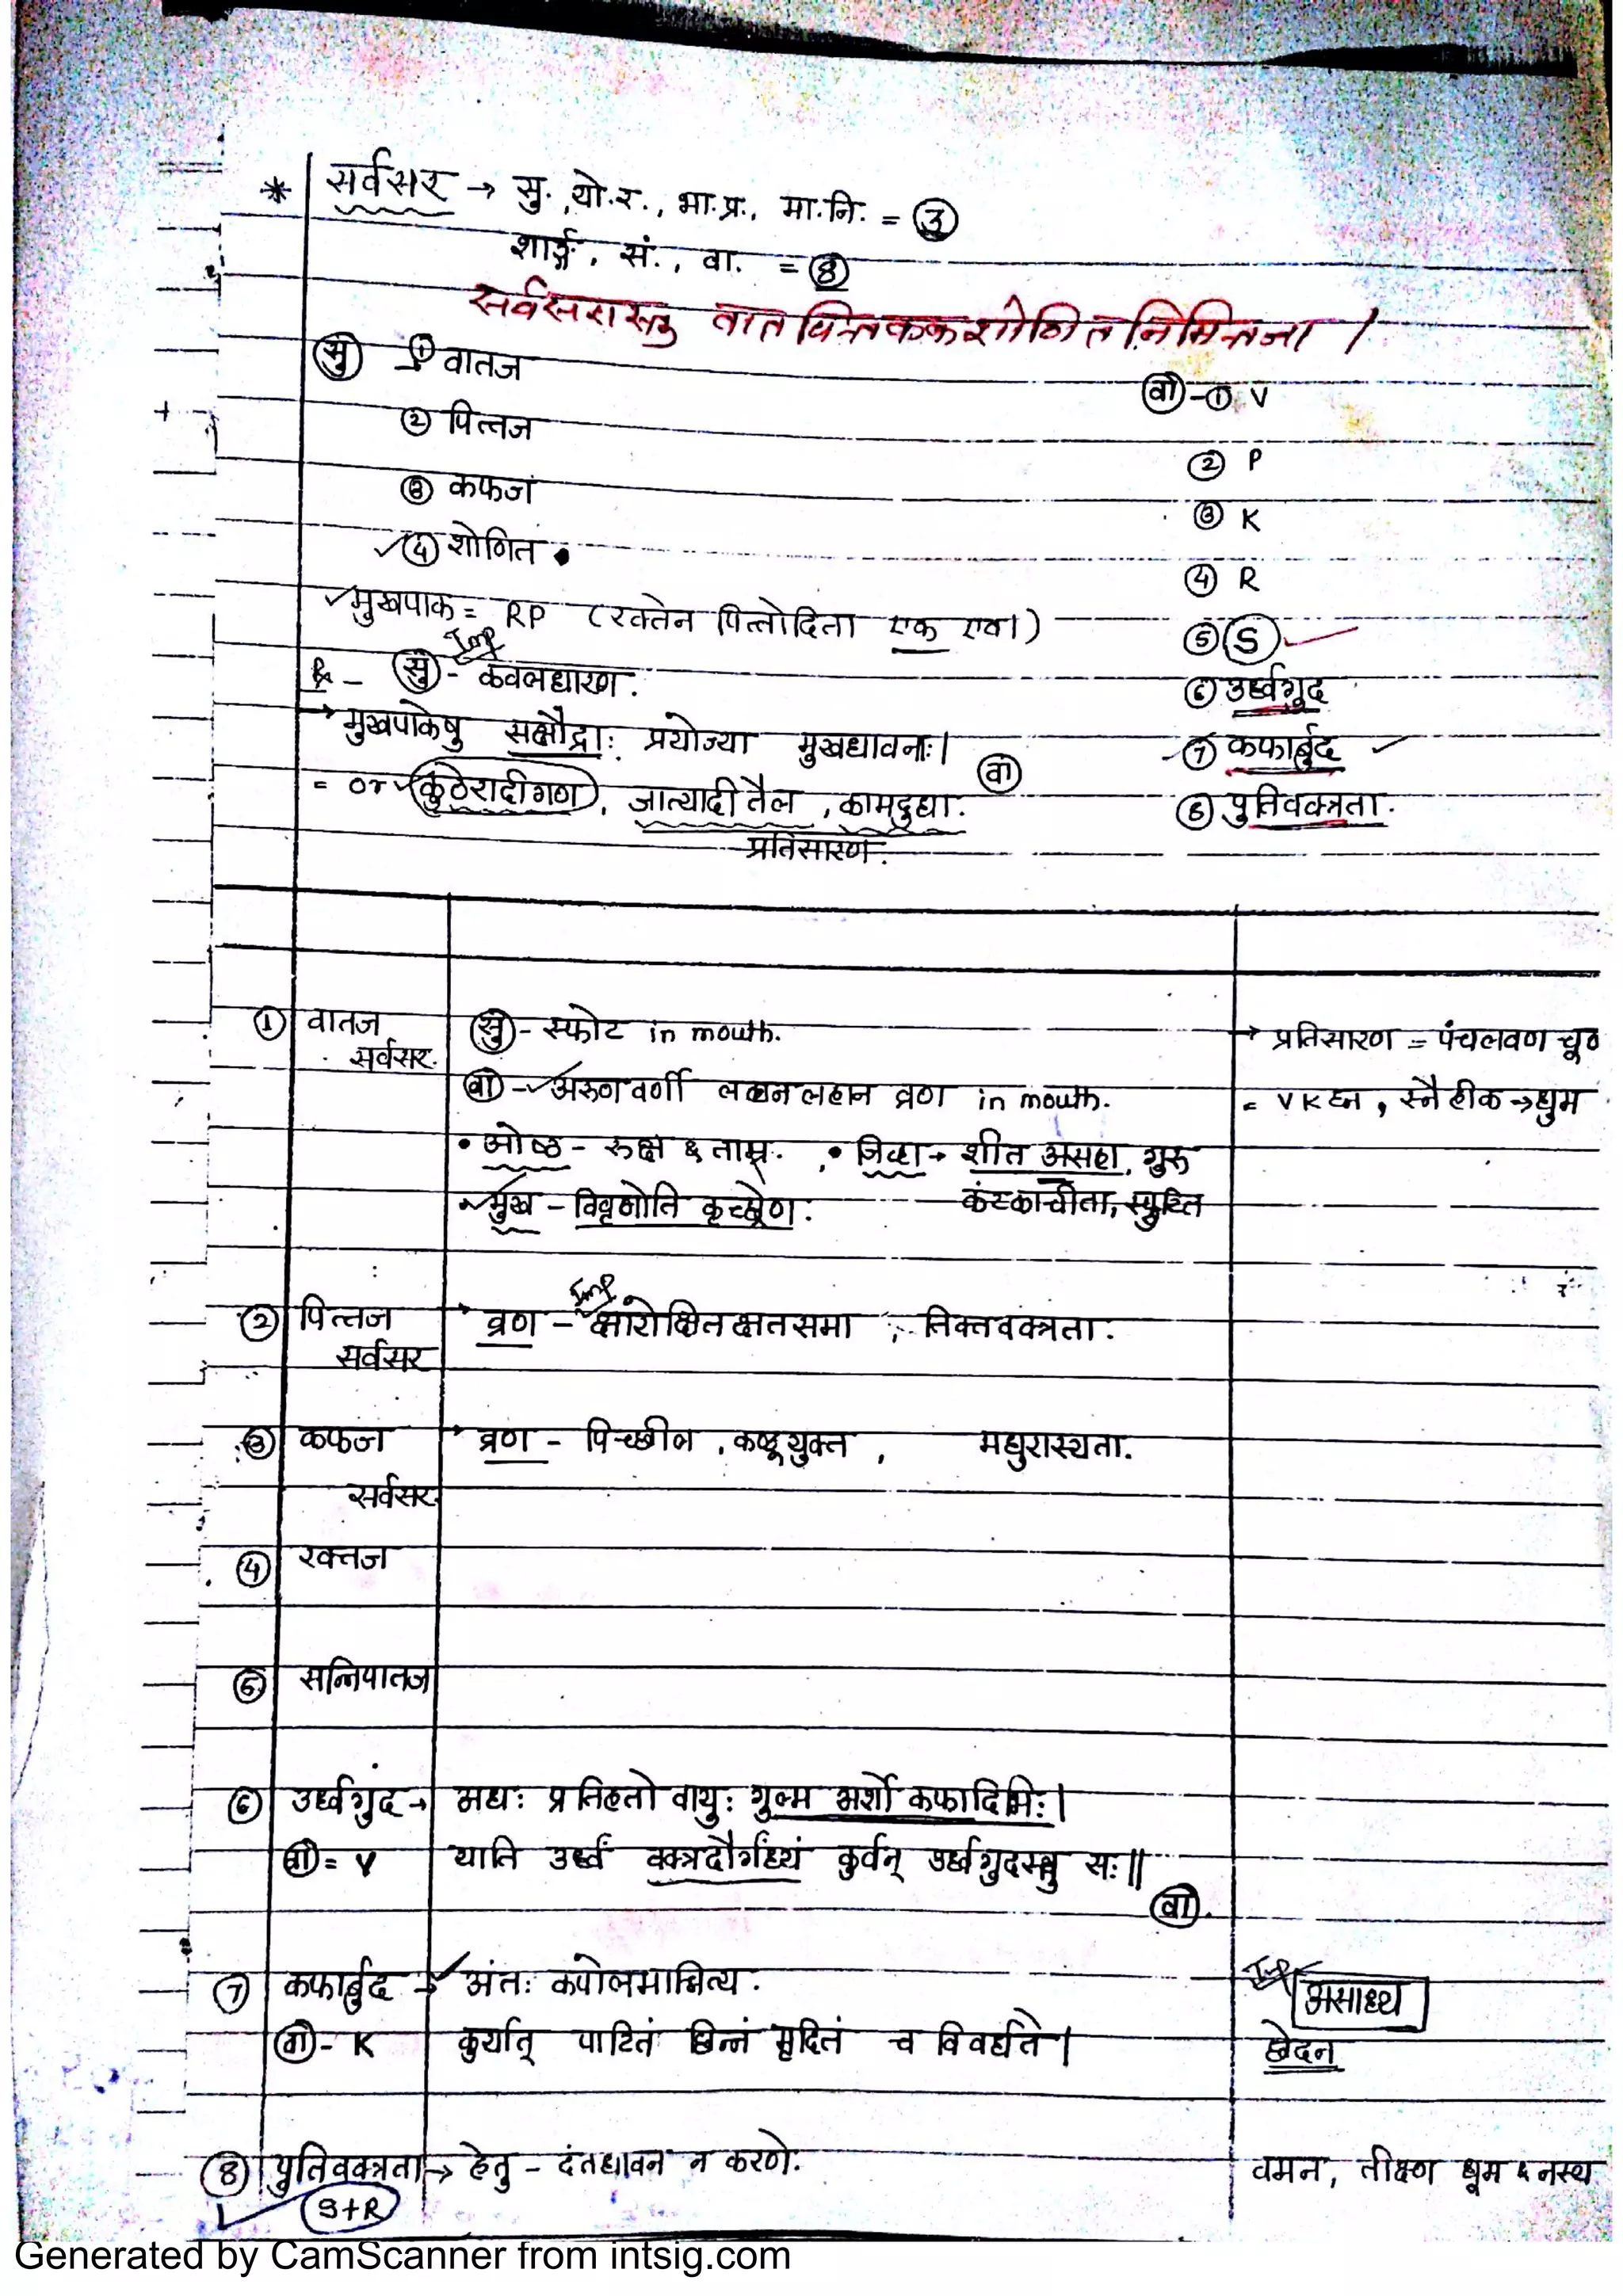 * सर्वसर → सु., यो.र., भा.प्र., मा.नि. = ③
शार्ङ्ग, सं., वा. = ⑧
सर्वसरास्तु वातपित्तकफशोणितनिमित्तजा |
सु → ① वातज
② पित्तज
③ कफज
✓④ शोणित
वा - ① V
② P
③ K
④ R
⑤ S ✓
⑥ उर्ध्वगुद
⑦ कफार्बुद ✓
⑧ पुतिवक्त्रता.
✓मुखपाक = RP (रक्तेन पित्तोदिता एक एव।)
Imp
℞ - सु - कवलधारण.
→ मुखपाकेषु सक्षौद्राः प्रयोज्या मुखधावनाः|
= or ✓ कुठेरादीगण, जात्यादी तैल, कामदुधा. वा
प्रतिसारण.
① वातज सर्वसर
सु - स्फोट in mouth.
वा - ✓ अरुणवर्णी लहान लहान व्रण in mouth.
• ओष्ठ - रुक्ष & ताम्र. , • जिव्हा → शीत असहा, गुरु
✓ मुख - विवृणोति कृच्छ्रेण. कंटकाचीता, स्फुटित
→ प्रतिसारण = पंचलवण चूर्ण
= VK घ्न, स्नैहीक → धुम
② पित्तज सर्वसर
Imp
→ व्रण - क्षारोक्षितक्षतसमा , तिक्तवक्त्रता.
③ कफज सर्वसर
→ व्रण - पिच्छील, कण्डूयुक्त, मधुरास्यता.
④ रक्तज
⑤ सन्निपातज
⑥ उर्ध्वगुद → मधः प्रतिहतो वायुः गुल्म मर्शो कफादिभिः|
वा = V याति उर्ध्वं वक्त्रदौर्गंध्यं कुर्वन् उर्ध्वगुदस्तु सः||
वा.
⑦ कफार्बुद → ✓ अंतः कपोलमाश्रित्य.
वा - K कुर्यात् पाटितं छिन्नं मृदितं च विवर्धते|
Imp असाध्य
छेदन
⑧ पुतिवक्त्रता → हेतु - दंतधावन न करणे.
S+R
वमन, तीक्ष्ण धूम & नस्य
Generated by CamScanner from intsig.com